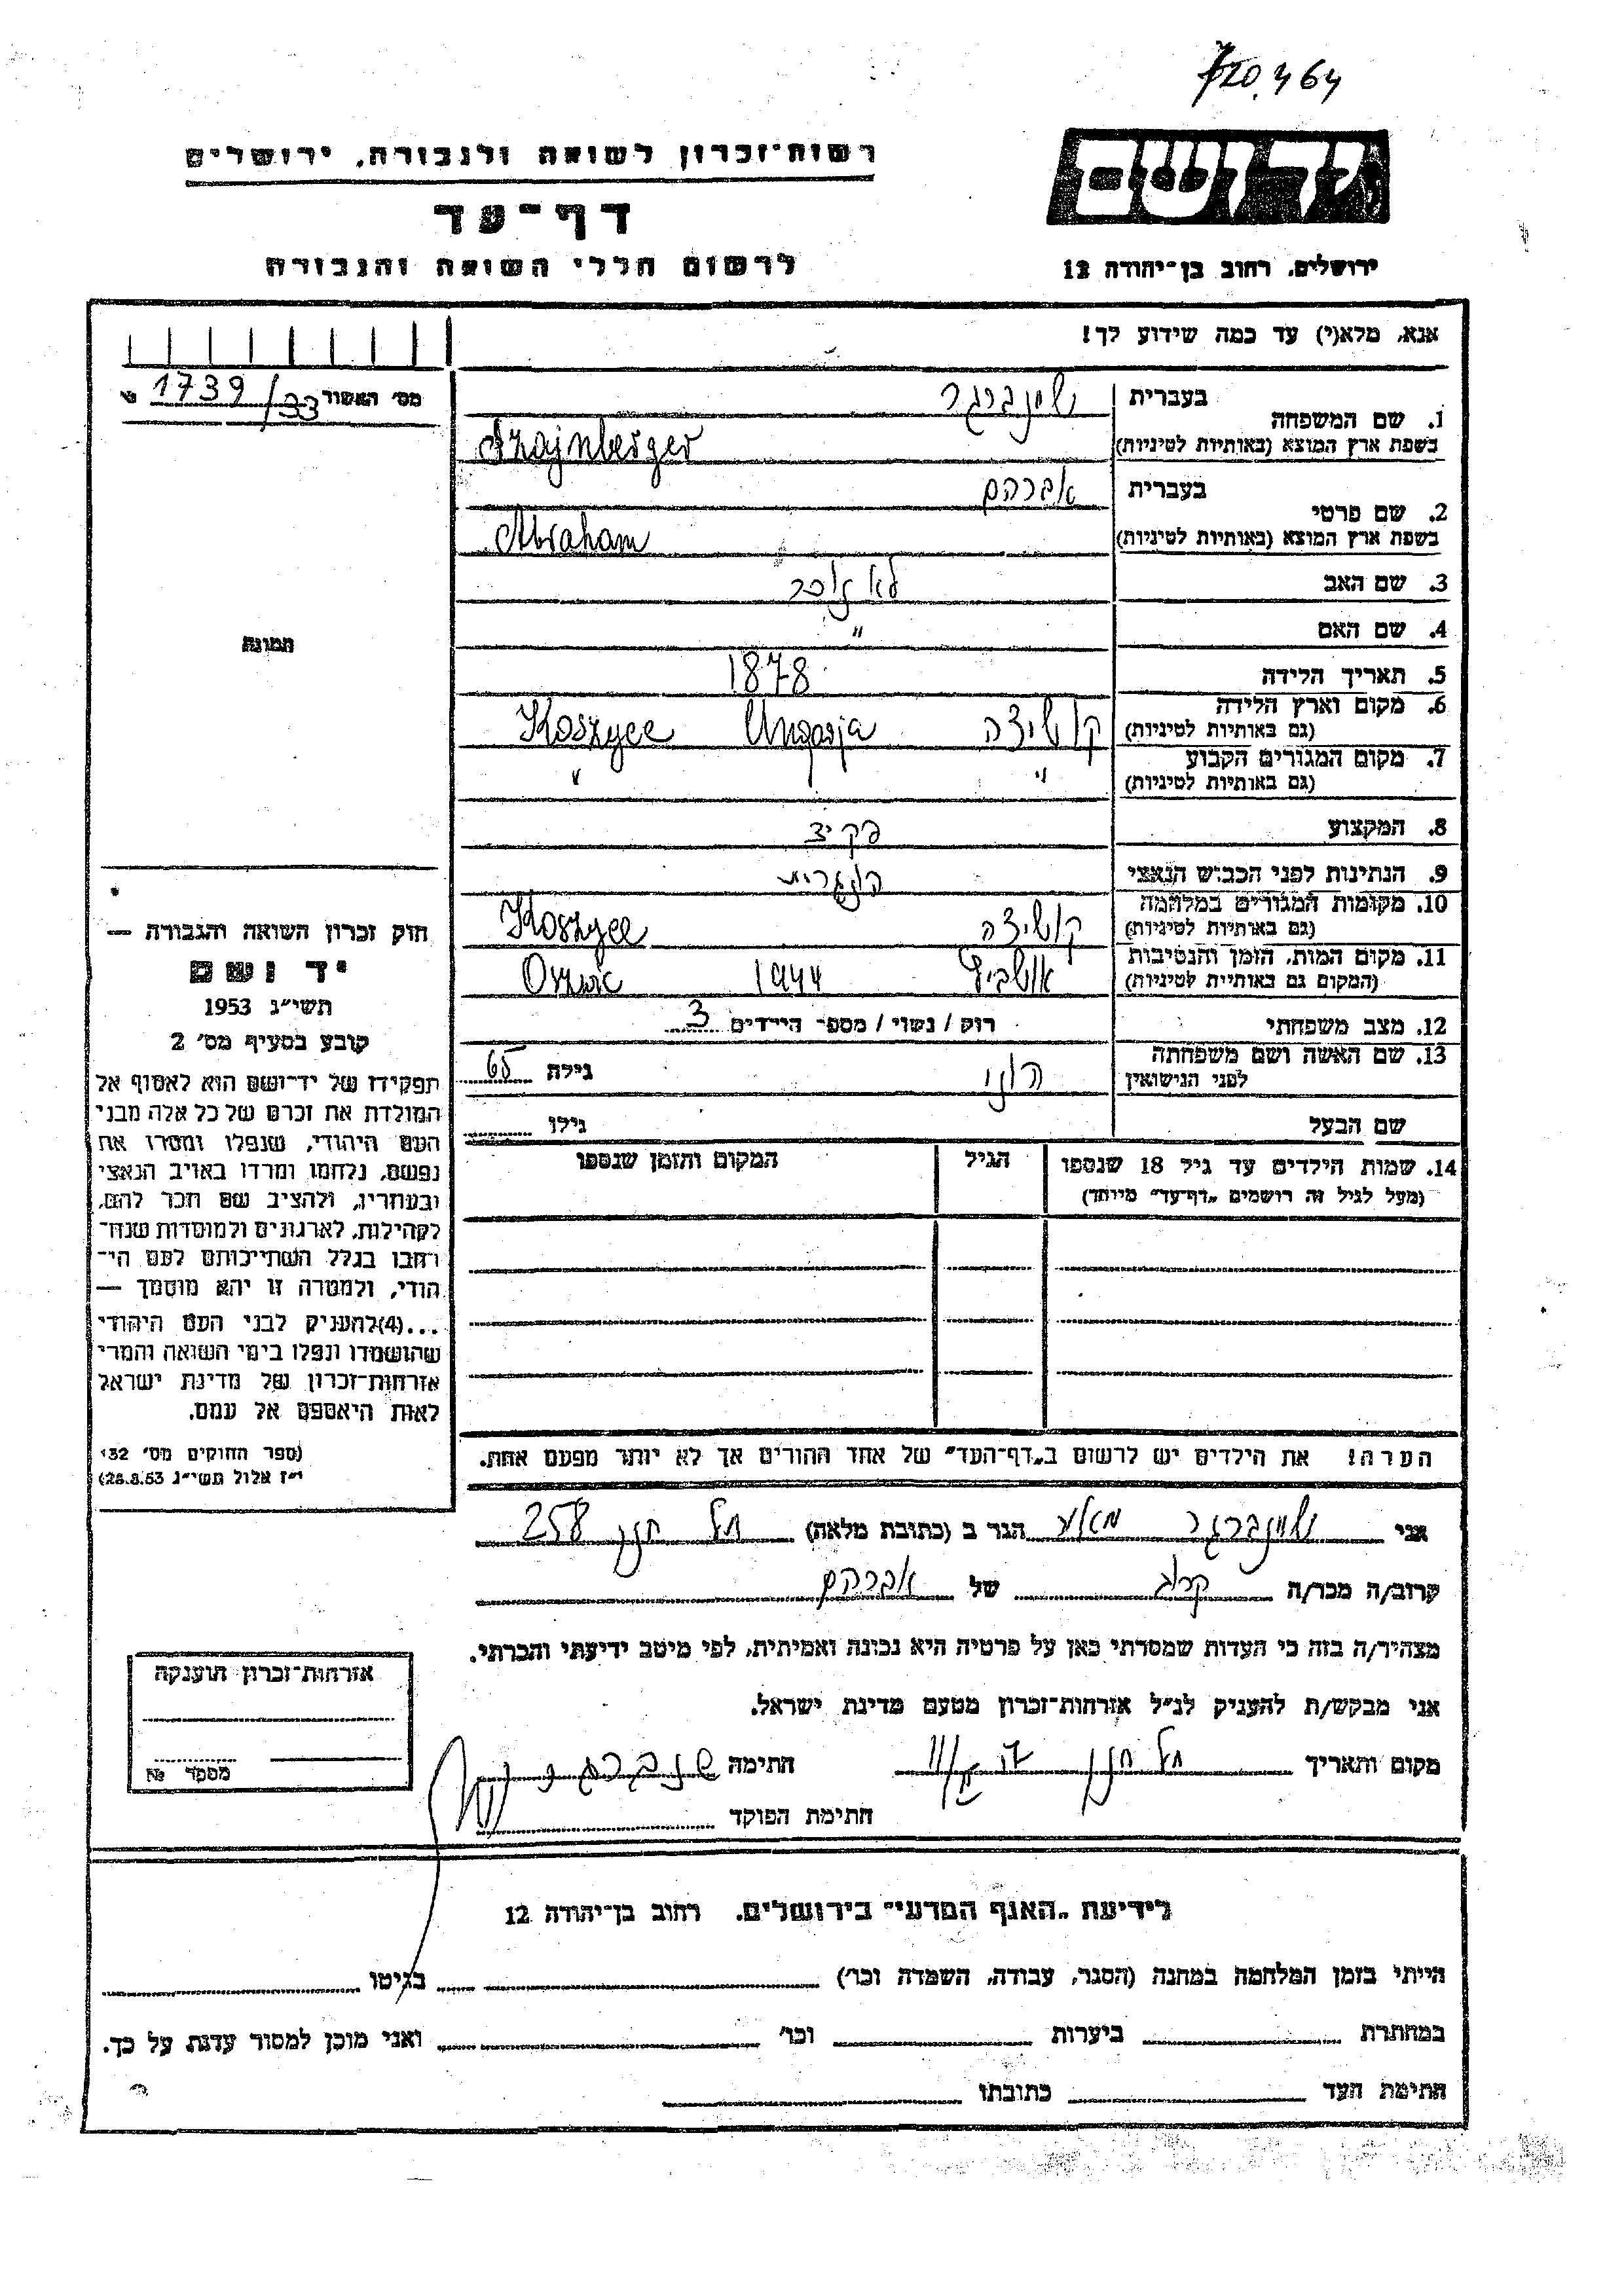 720.464
רשות־זכרון לשואה ולגבורה, ירושלים
דף־עד
לרשום חללי השואה והגבורה
יד ושם
ירושלים, רחוב בן־יהודה 12
אנא, מלא(י) עד כמה שידוע לך!
מס׳ האשור 1739/33
1. שם המשפחה בעברית שיינברגר
בשפת ארץ המוצא (באותיות לטיניות) Szajnberger
2. שם פרטי בעברית אברהם
בשפת ארץ המוצא (באותיות לטיניות) Abraham
3. שם האב לא זוכר
4. שם האם "
5. תאריך הלידה 1878
6. מקום וארץ הלידה (גם באותיות לטיניות) קושיצה Ungarja Koszyce
7. מקום המגורים הקבוע (גם באותיות לטיניות) " "
8. המקצוע פקיד
9. הנתינות לפני הכבוש הנאצי הונגרית
10. מקומות המגורים במלחמה (גם באותיות לטיניות) קושיצה Koszyce
11. מקום המות, הזמן והנסיבות (המקום גם באותיות לטיניות) אושביץ 1944
12. מצב משפחתי רוק / נשוי / מספר הילדים 3
13. שם האשה ושם משפחתה לפני הנישואין הוני גילה 65
שם הבעל גילו
14. שמות הילדים עד גיל 18 שנספו
(מעל לגיל זה רושמים „דף־עד" מיוחד)
הגיל
המקום והזמן שנספו
הערה! את הילדים יש לרשום ב„דף־העד" של אחד ההורים אך לא יותר מפעם אחת.
תמונה
חוק זכרון השואה והגבורה —
יד ושם
תשי״ג 1953
קובע בסעיף מס׳ 2
תפקידו של יד־ושם הוא לאסוף אל
המולדת את זכרם של כל אלה מבני
העם היהודי, שנפלו ומסרו את
נפשם, נלחמו ומרדו באויב הנאצי
ובעוזריו, ולהציב שם וזכר להם,
לקהילות, לארגונים ולמוסדות שנח־
רחבו בגלל השתייכותם לעם הי־
הודי, ולמטרה זו יהא מוסמך —
...(4)להעניק לבני העם היהודי
שהושמדו ונפלו בימי השואה והמרי
אזרחות־זכרון של מדינת ישראל
לאות היאספם אל עמם.
(ספר החוקים מס׳ 132
י״ז אלול תשי״ג 28.8.53)
אני שיינברגר הגר ב (כתובת מלאה) תל חנן 258
קרוב/ה מכר/ה קרוב של אברהם
מצהיר/ה בזה כי העדות שמסרתי כאן על פרטיה היא נכונה ואמיתית, לפי מיטב ידיעתי והכרתי.
אני מבקש/ת להעניק לנ״ל אזרחות־זכרון מטעם מדינת ישראל.
מקום ותאריך תל חנן חתימה
חתימת הפוקד
אזרחות־זכרון הוענקה
מספר №
לידיעת „האגף המדעי" בירושלים, רחוב בן־יהודה 12
הייתי בזמן המלחמה במחנה (הסגר, עבודה, השמדה וכו׳) בגיטו
במחתרת ביערות וכו׳ ואני מוכן למסור עדות על כך.
חתימת העד כתובתו